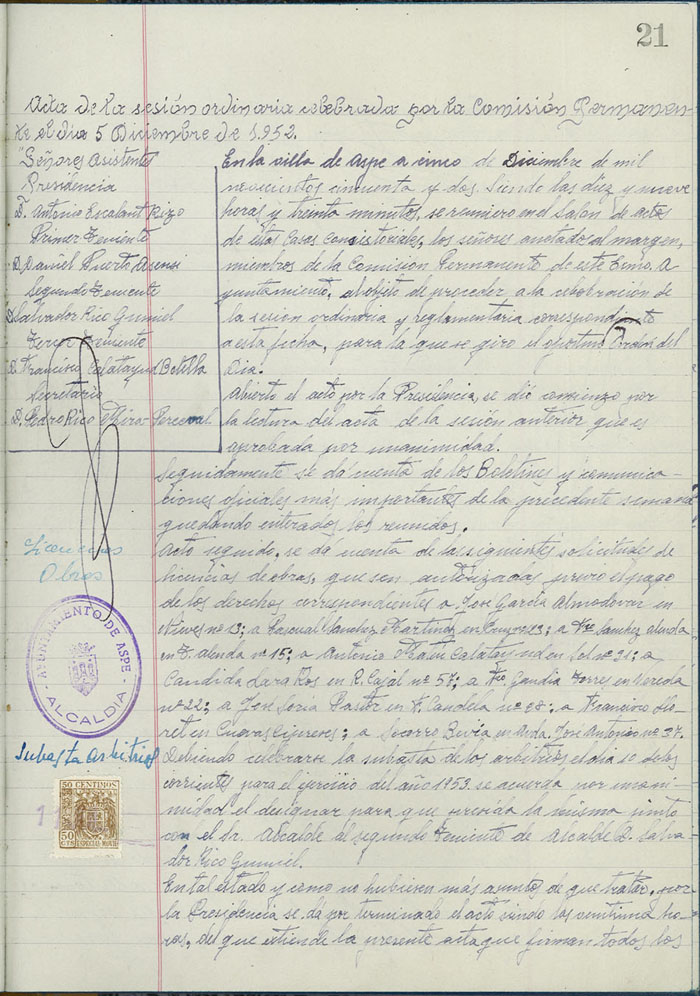 21
Acta de la sesión ordinaria celebrada por la Comisión Permanen-
te el dia 5 Diciembre de 1.952.
Señores Asistentes
Presidencia
D. Antonio Escalant Rizo
Primer Teniente
D. Daniel Puerto Asensi
Segundo Teniente
D. Salvador Rico Gumiel
Tercer Teniente
D. Francisco Calatayud Botella
Secretario
D. Pedro Rico Miro Perceval
En la villa de Aspe a cinco de Diciembre de mil
novecientos cincuenta y dos. Siendo las diez y nueve
horas y treinta minutos, se reunieron en el Salon de actos
de estas Casas Consistoriales, los señores anotados al margen,
miembros de la Comision Permanente de este Excmo. A
yuntamiento, al objeto de proceder a la celebración de
la sesión ordinaria y reglamentaria correspondiente
a esta fecha, para la que se giro el oportuno Orden del
Dia.
Abierto el acto por la Presidencia, se dió comienzo por
la lectura del acta de la sesión anterior que es
aprobada por unanimidad.
Seguidamente se dá cuenta de los Boletines y comunica-
ciones oficiales más importantes de la precedente semana
quedando enterados los reunidos.
Licencias
Obras
Acto seguido, se dá cuenta de las siguientes solicitudes de
licencias de obras, que son autorizadas previo el pago
de los derechos correspondientes a Jose Garcia Almodovar en
Nieves nº 13; a Pascual Sanchez Martinez en nº 13; a Sanchez
en nº 15; a Antonio Calatayud en Sol nº 21; a
Candida Lara Ros en R. Cajal nº 57; a Gandia Torres en
nº 22; a Jose Soria Pastor en Candela nº; a Francisco Llo-
ret en Cuevas; a Socorro en Avda. Jose Antonio nº 37.
AYUNTAMIENTO DE ASPE
ALCALDIA
Subasta Arbitrios
Debiendo celebrarse la subasta de los arbitrios el dia 10 de los
corrientes para el ejercicio del año 1953. se acuerda por unani-
midad el designar para que presida la misma junto
con el Sr. Alcalde al segundo Teniente de Alcalde D. Salva-
dor Rico Gumiel.
50 CENTIMOS
50
CTS
ESPECIAL MOVIL
En tal estado y como no hubiesen más asuntos de que tratar, por
la Presidencia se dá por terminado el acto siendo las veintiuna ho-
ras, del que extiende la presente acta que firman todos los